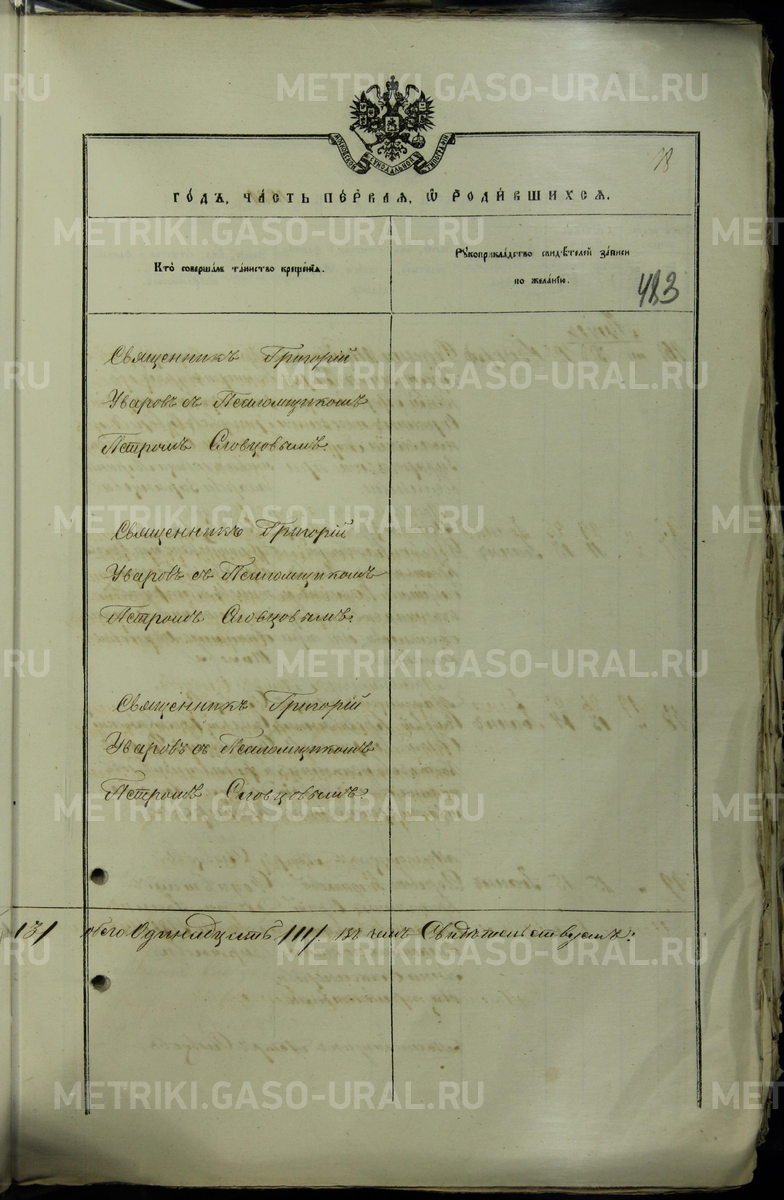 METRIKI.GASO-URAL.RU
18
ГОДЪ, ЧАСТЬ ПЕРВАЯ, Ѡ РОДИВШИХСЯ.
Кто совершалъ таинство крещенія.
Рукоприкладство свидѣтелей записи
по желанію.
483
Священникъ Григорій
Уваровъ съ Псаломщикомъ
Петромъ Словцовымъ.
Священникъ Григорій
Уваровъ съ Псаломщикомъ
Петромъ Словцовымъ.
Священникъ Григорій
Уваровъ съ Псаломщикомъ
Петромъ Словцовымъ.
всего Одиннадцать /11/. въ чемъ Свидѣтельствуемъ: